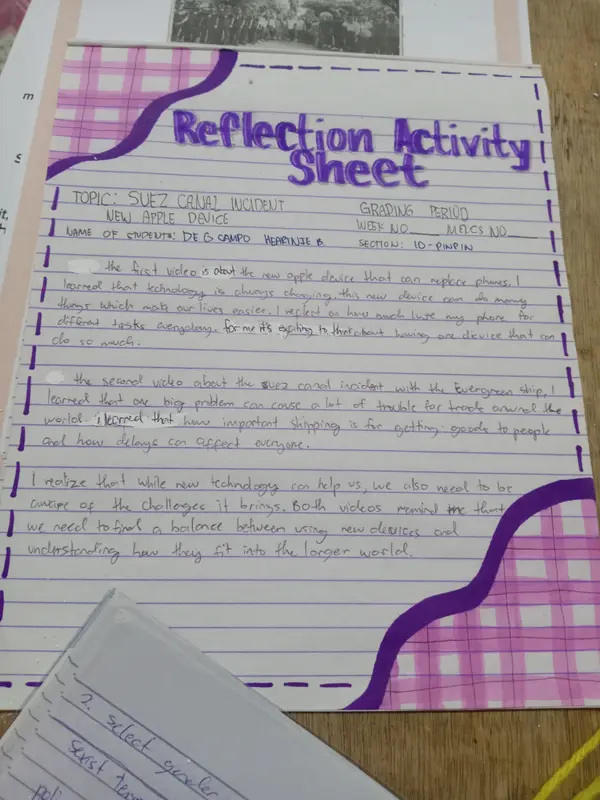 m
S
it,
Reflection Activity
Sheet
TOPIC: SUEZ CANAL INCIDENT
NEW APPLE DEVICE
GRADING PERIOD
WEEK NO____ MELCS NO____
NAME OF STUDENTS: DE G CAMPO HEARTNIE B.
SECTION: 10-PINPIN
the first video is about the new apple device that can replace phones. I
learned that technology is always changing. this new device can do many
things which make our lives easier. I reflect on how much I use my phone for
different tasks everyday. for me it's exciting to that about having one device that can
do so much.
the second video about the suez canal incident with the Evergreen ship, I
learned that one big problem can cause a lot of trouble for trade around the
world. i learned that how important shipping is for getting goods to people
and how delays can affect everyone.
I realize that while new technology can help us, we also need to be
aware of the challenges it brings. Both videos remind me that
we need to find a balance between using new devices and
understanding how they fit into the larger world.
2. select gender